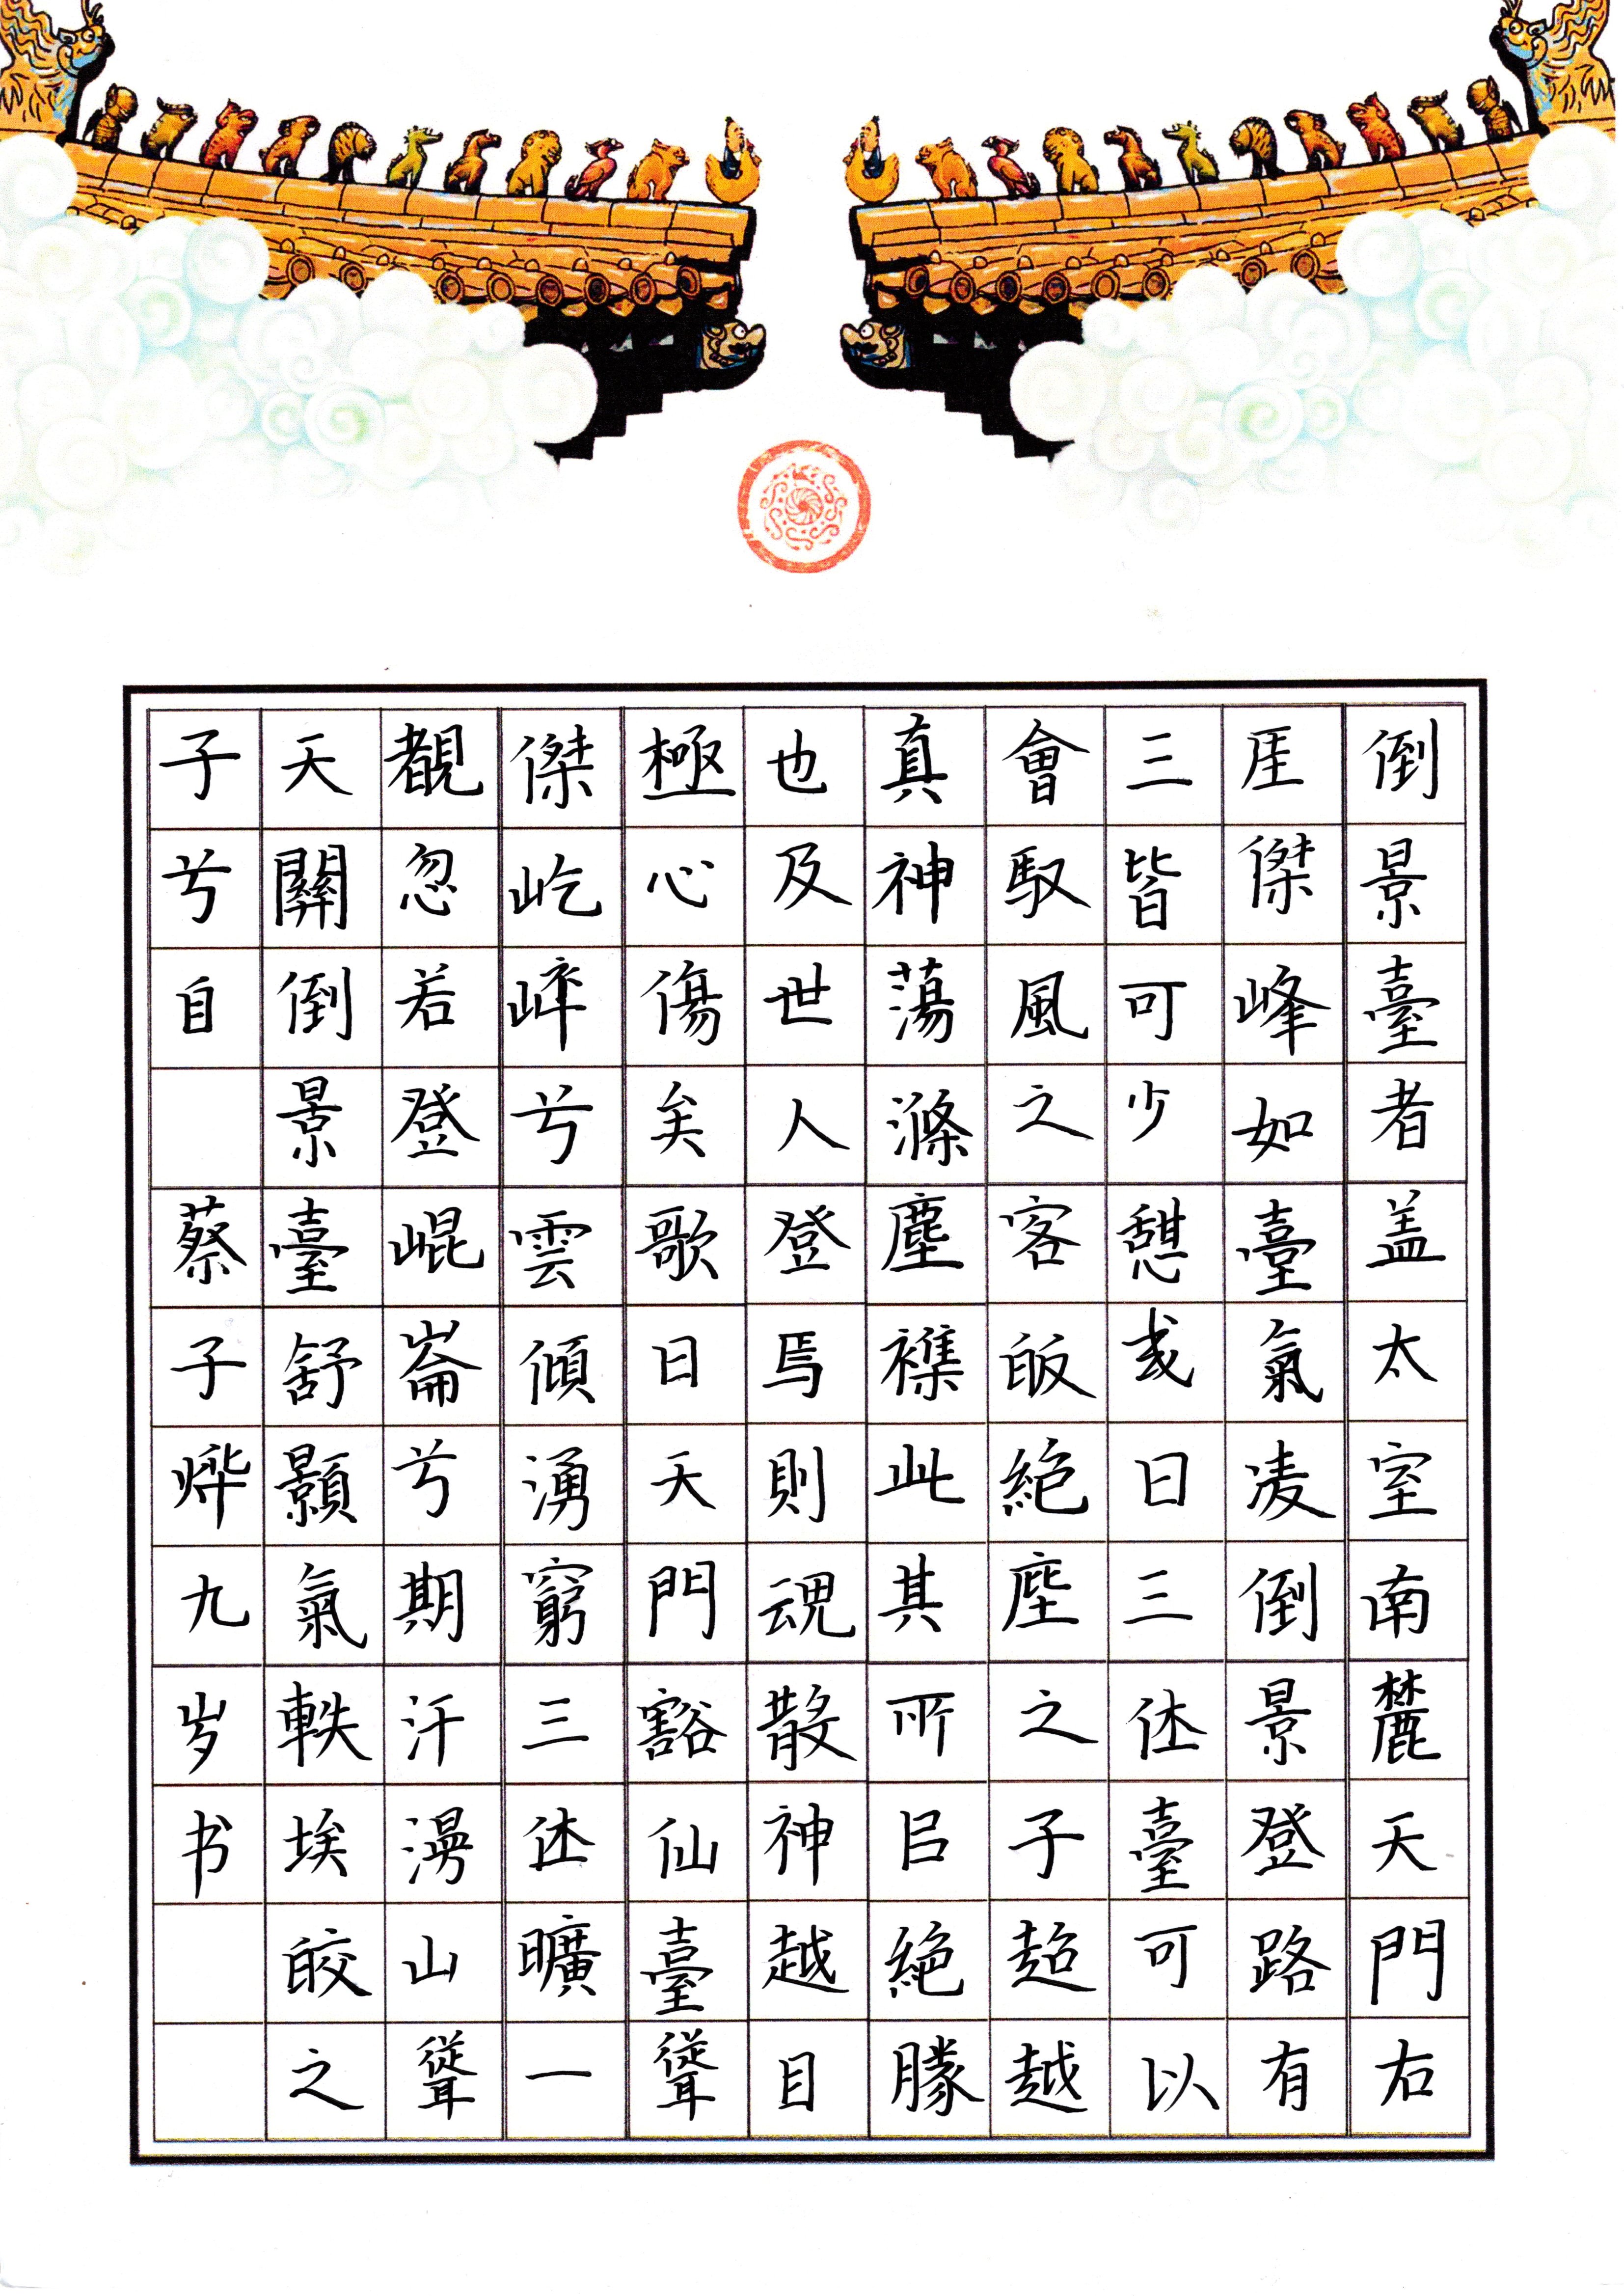 倒景臺者盖太室南麓天門右
厓傑峰如臺氣凌倒景登路有
三皆可少憩或曰三休臺可以
會馭風之客皈絕塵之子超越
真神蕩滌塵襟此其所㠯絕勝
也及世人登焉則魂散神越目
極心傷矣歌曰天門豁仙臺聳
傑屹崪兮雲傾湧窮三休曠一
覩忽若登崐崙兮期汗漫山聳
天關倒景臺舒顥氣軼埃皎之
子兮自 蔡子烨九岁书